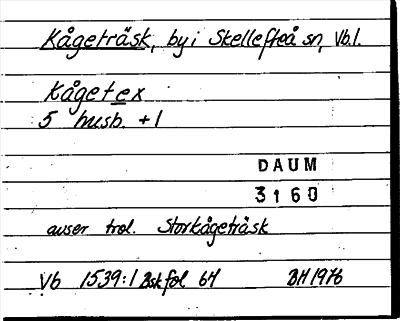 Kågeträsk, by i Skellefteå sn, Vb.l.
Kågetex
5 hush. + 1
DAUM
3160
avser trol. Storkågeträsk
Vb 1539:1 Bskfol 64
BH 1976